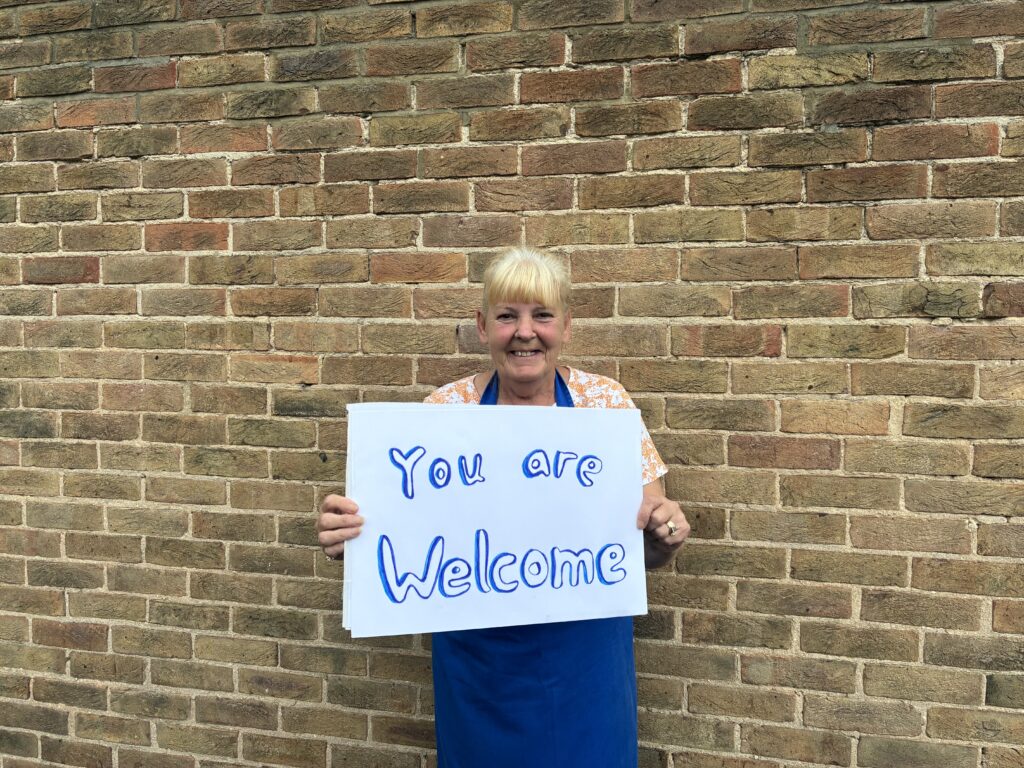 You are
Welcome